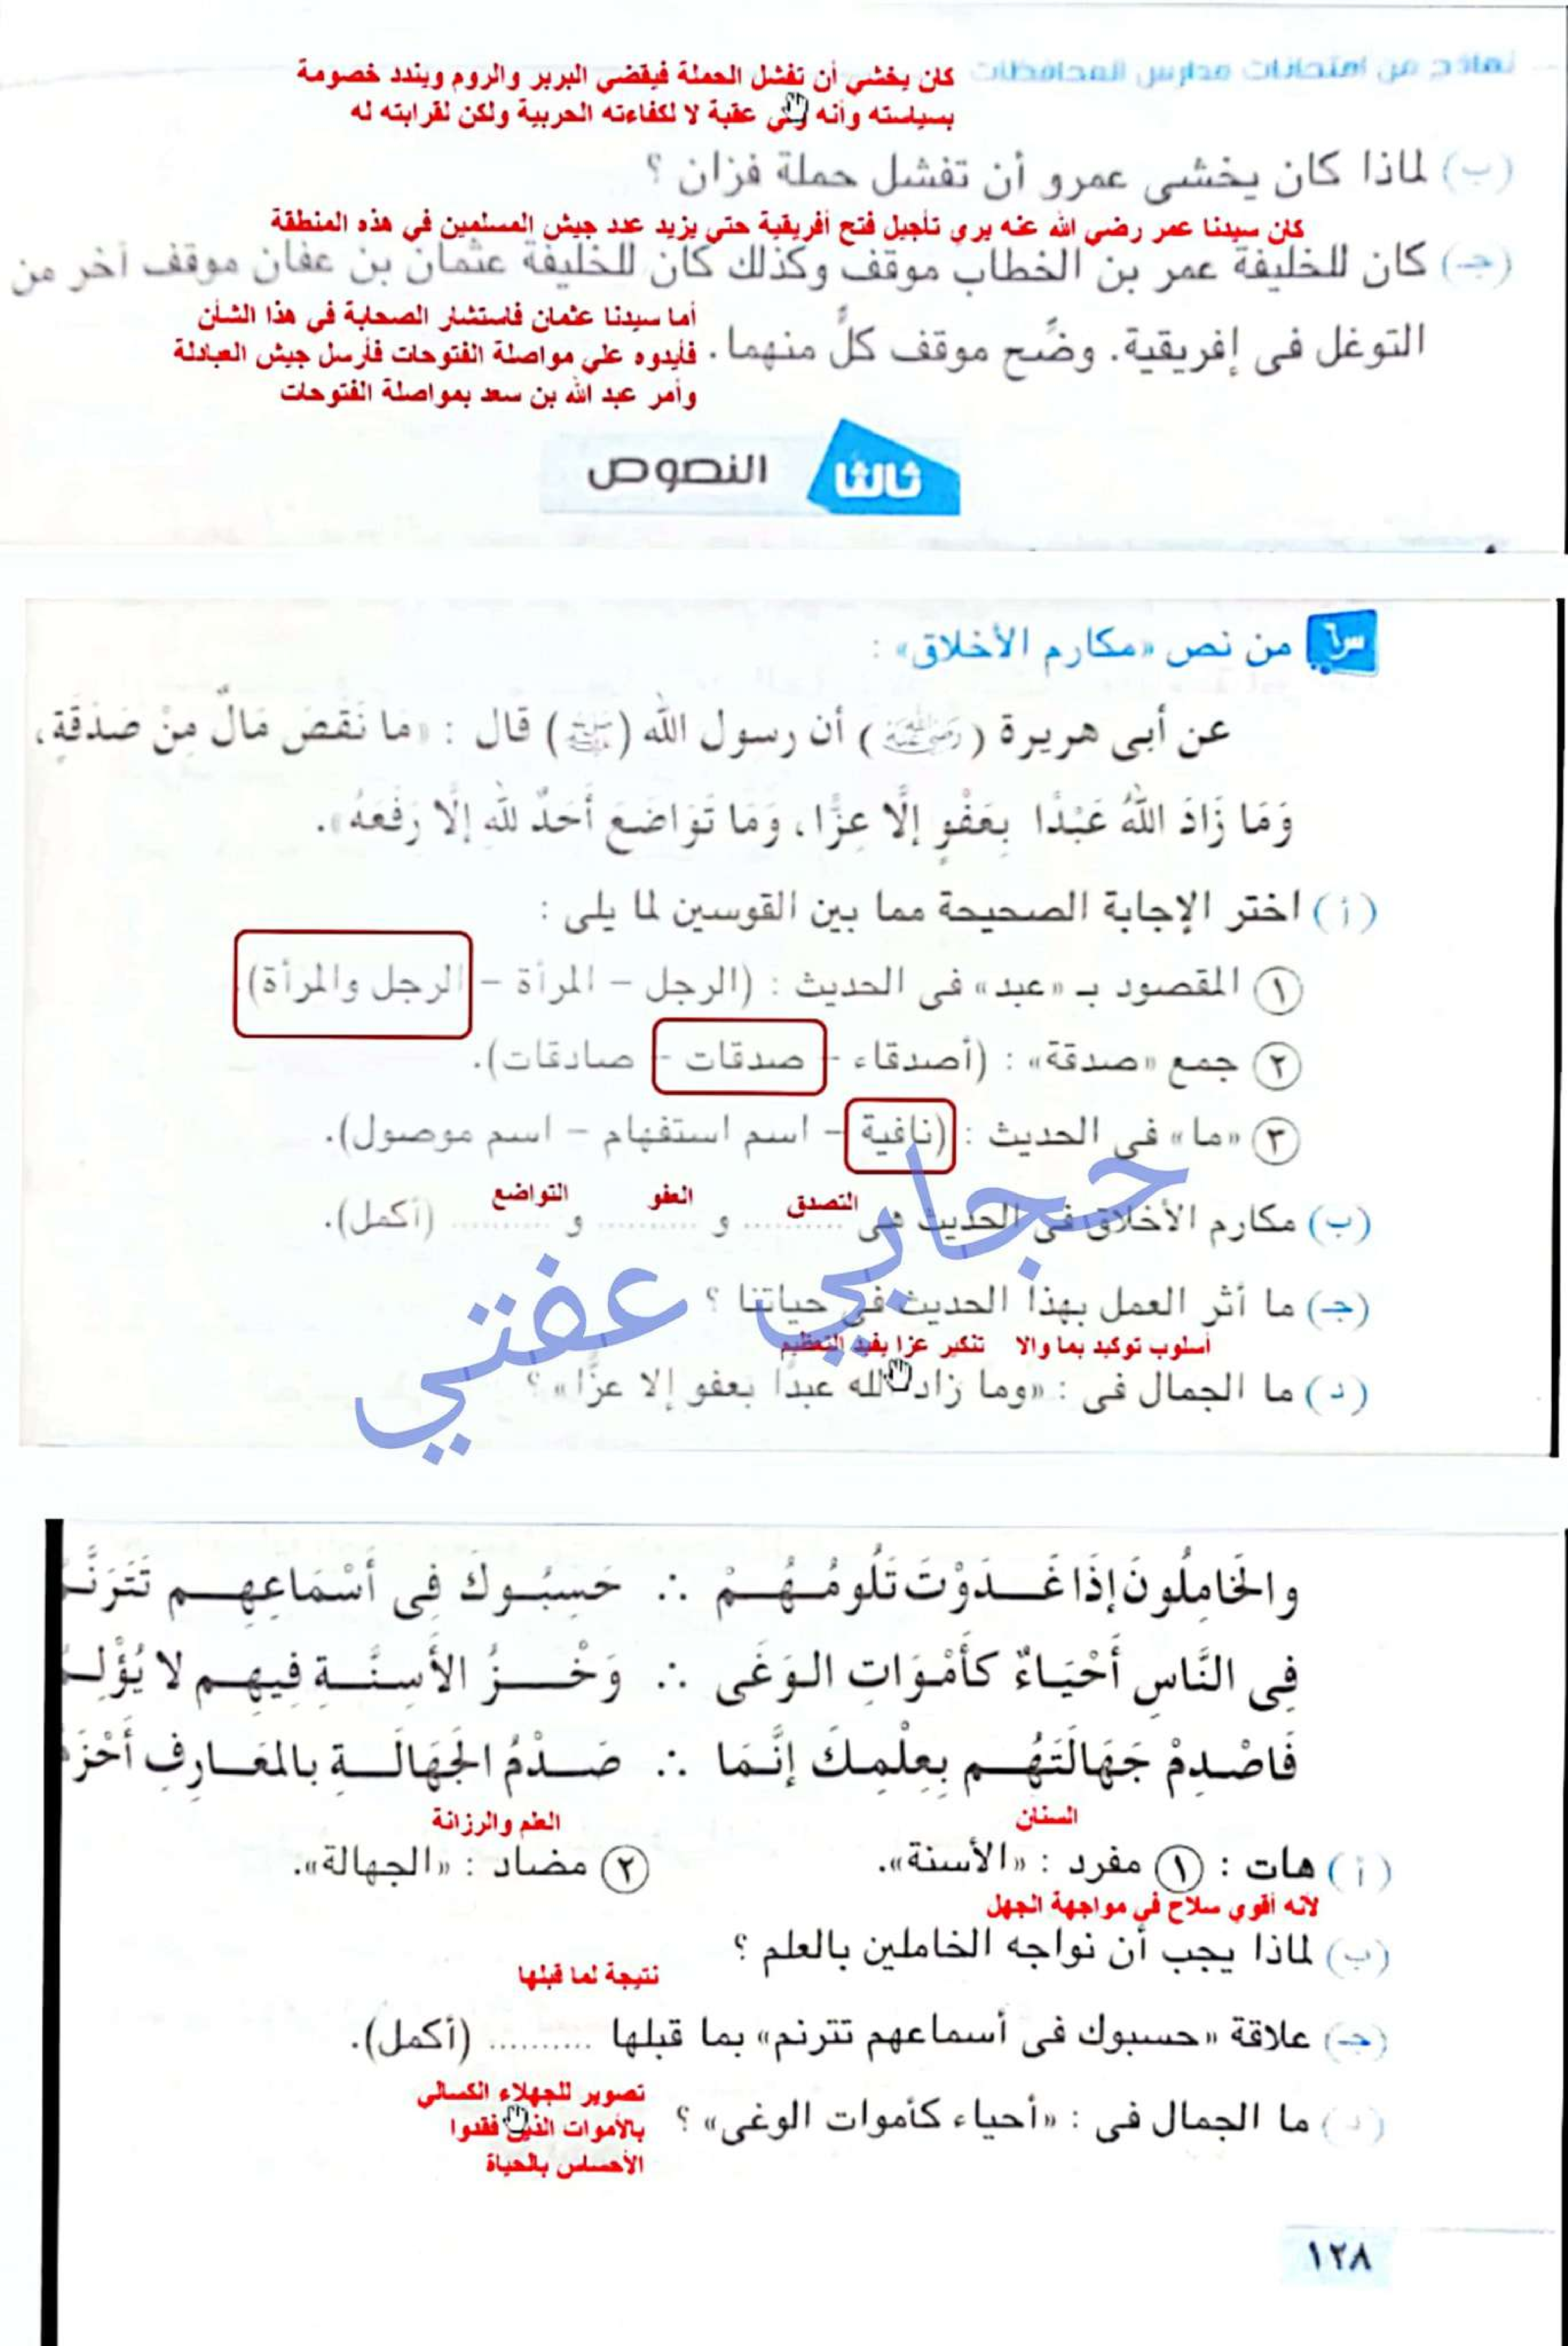 نماذج من امتحانات مدارس المحافظات
كان يخشي أن تفشل الحملة فيقضي البربر والروم ويندد خصومة
بسياسته وأنه ولي عقبة لا لكفاءته الحربية ولكن لقرابته له
(ب) لماذا كان يخشى عمرو أن تفشل حملة فزان ؟
كان سيدنا عمر رضي الله عنه يري تأجيل فتح أفريقية حتي يزيد عدد جيش المسلمين في هذه المنطقة
(جـ) كان للخليفة عمر بن الخطاب موقف وكذلك كان للخليفة عثمان بن عفان موقف آخر من
أما سيدنا عثمان فاستشار الصحابة في هذا الشأن
التوغل فى إفريقية. وضِّح موقف كلٍّ منهما.
فأيدوه علي مواصلة الفتوحات فأرسل جيش العبادلة
وأمر عبد الله بن سعد بمواصلة الفتوحات
ثالثًا النصوص
س٦ من نص «مكارم الأخلاق» :
عن أبى هريرة (رضي الله عنه) أن رسول الله (ﷺ) قال : «مَا نَقَصَ مَالٌ مِنْ صَدَقَةٍ،
وَمَا زَادَ اللهُ عَبْدًا بِعَفْوٍ إلَّا عِزًّا، وَمَا تَوَاضَعَ أَحَدٌ للهِ إلَّا رَفَعَهُ».
(أ) اختر الإجابة الصحيحة مما بين القوسين لما يلى :
١ المقصود بـ «عبد» فى الحديث : (الرجل – المرأة – الرجل والمرأة).
٢ جمع «صدقة» : (أصدقاء – صدقات – صادقات).
٣ «ما» فى الحديث : (نافية – اسم استفهام – اسم موصول).
التصدق العفو التواضع
(ب) مكارم الأخلاق فى الحديث هى .......... و .......... و .......... (أكمل).
(جـ) ما أثر العمل بهذا الحديث فى حياتنا ؟
أسلوب توكيد بما والا تنكير عزا يفيد التعظيم
(د) ما الجمال فى : «وما زاد الله عبدًا بعفو إلا عزًّا» ؟
حجابي عفتي
والخَامِلُونَ إذَا غَـدَوْتَ تَلُومُـهُـمْ ∴ حَسِبُـوكَ فِى أَسْمَاعِهِـم تَتَرَنَّـمُ
فِى النَّاسِ أَحْيَاءٌ كَأَمْوَاتِ الـوَغَى ∴ وَخْـزُ الأَسِنَّـةِ فِيهِـم لا يُؤْلِـمُ
فَاصْدِمْ جَهَالَتَهُـم بِعِلْمِكَ إنَّمَا ∴ صَـدْمُ الجَهَالَـةِ بالمَعَـارِفِ أَحْزَمُ
السنان العلم والرزانة
(أ) هات : ١ مفرد : «الأسنة». ٢ مضاد : «الجهالة».
لأنه أقوي سلاح في مواجهة الجهل
(ب) لماذا يجب أن نواجه الخاملين بالعلم ؟
نتيجة لما قبلها
(جـ) علاقة «حسبوك فى أسماعهم تترنم» بما قبلها .......... (أكمل).
تصوير للجهلاء الكسالي
(د) ما الجمال فى : «أحياء كأموات الوغى» ؟
بالأموات الذين فقدوا
الأحساس بالحياة
١٢٨